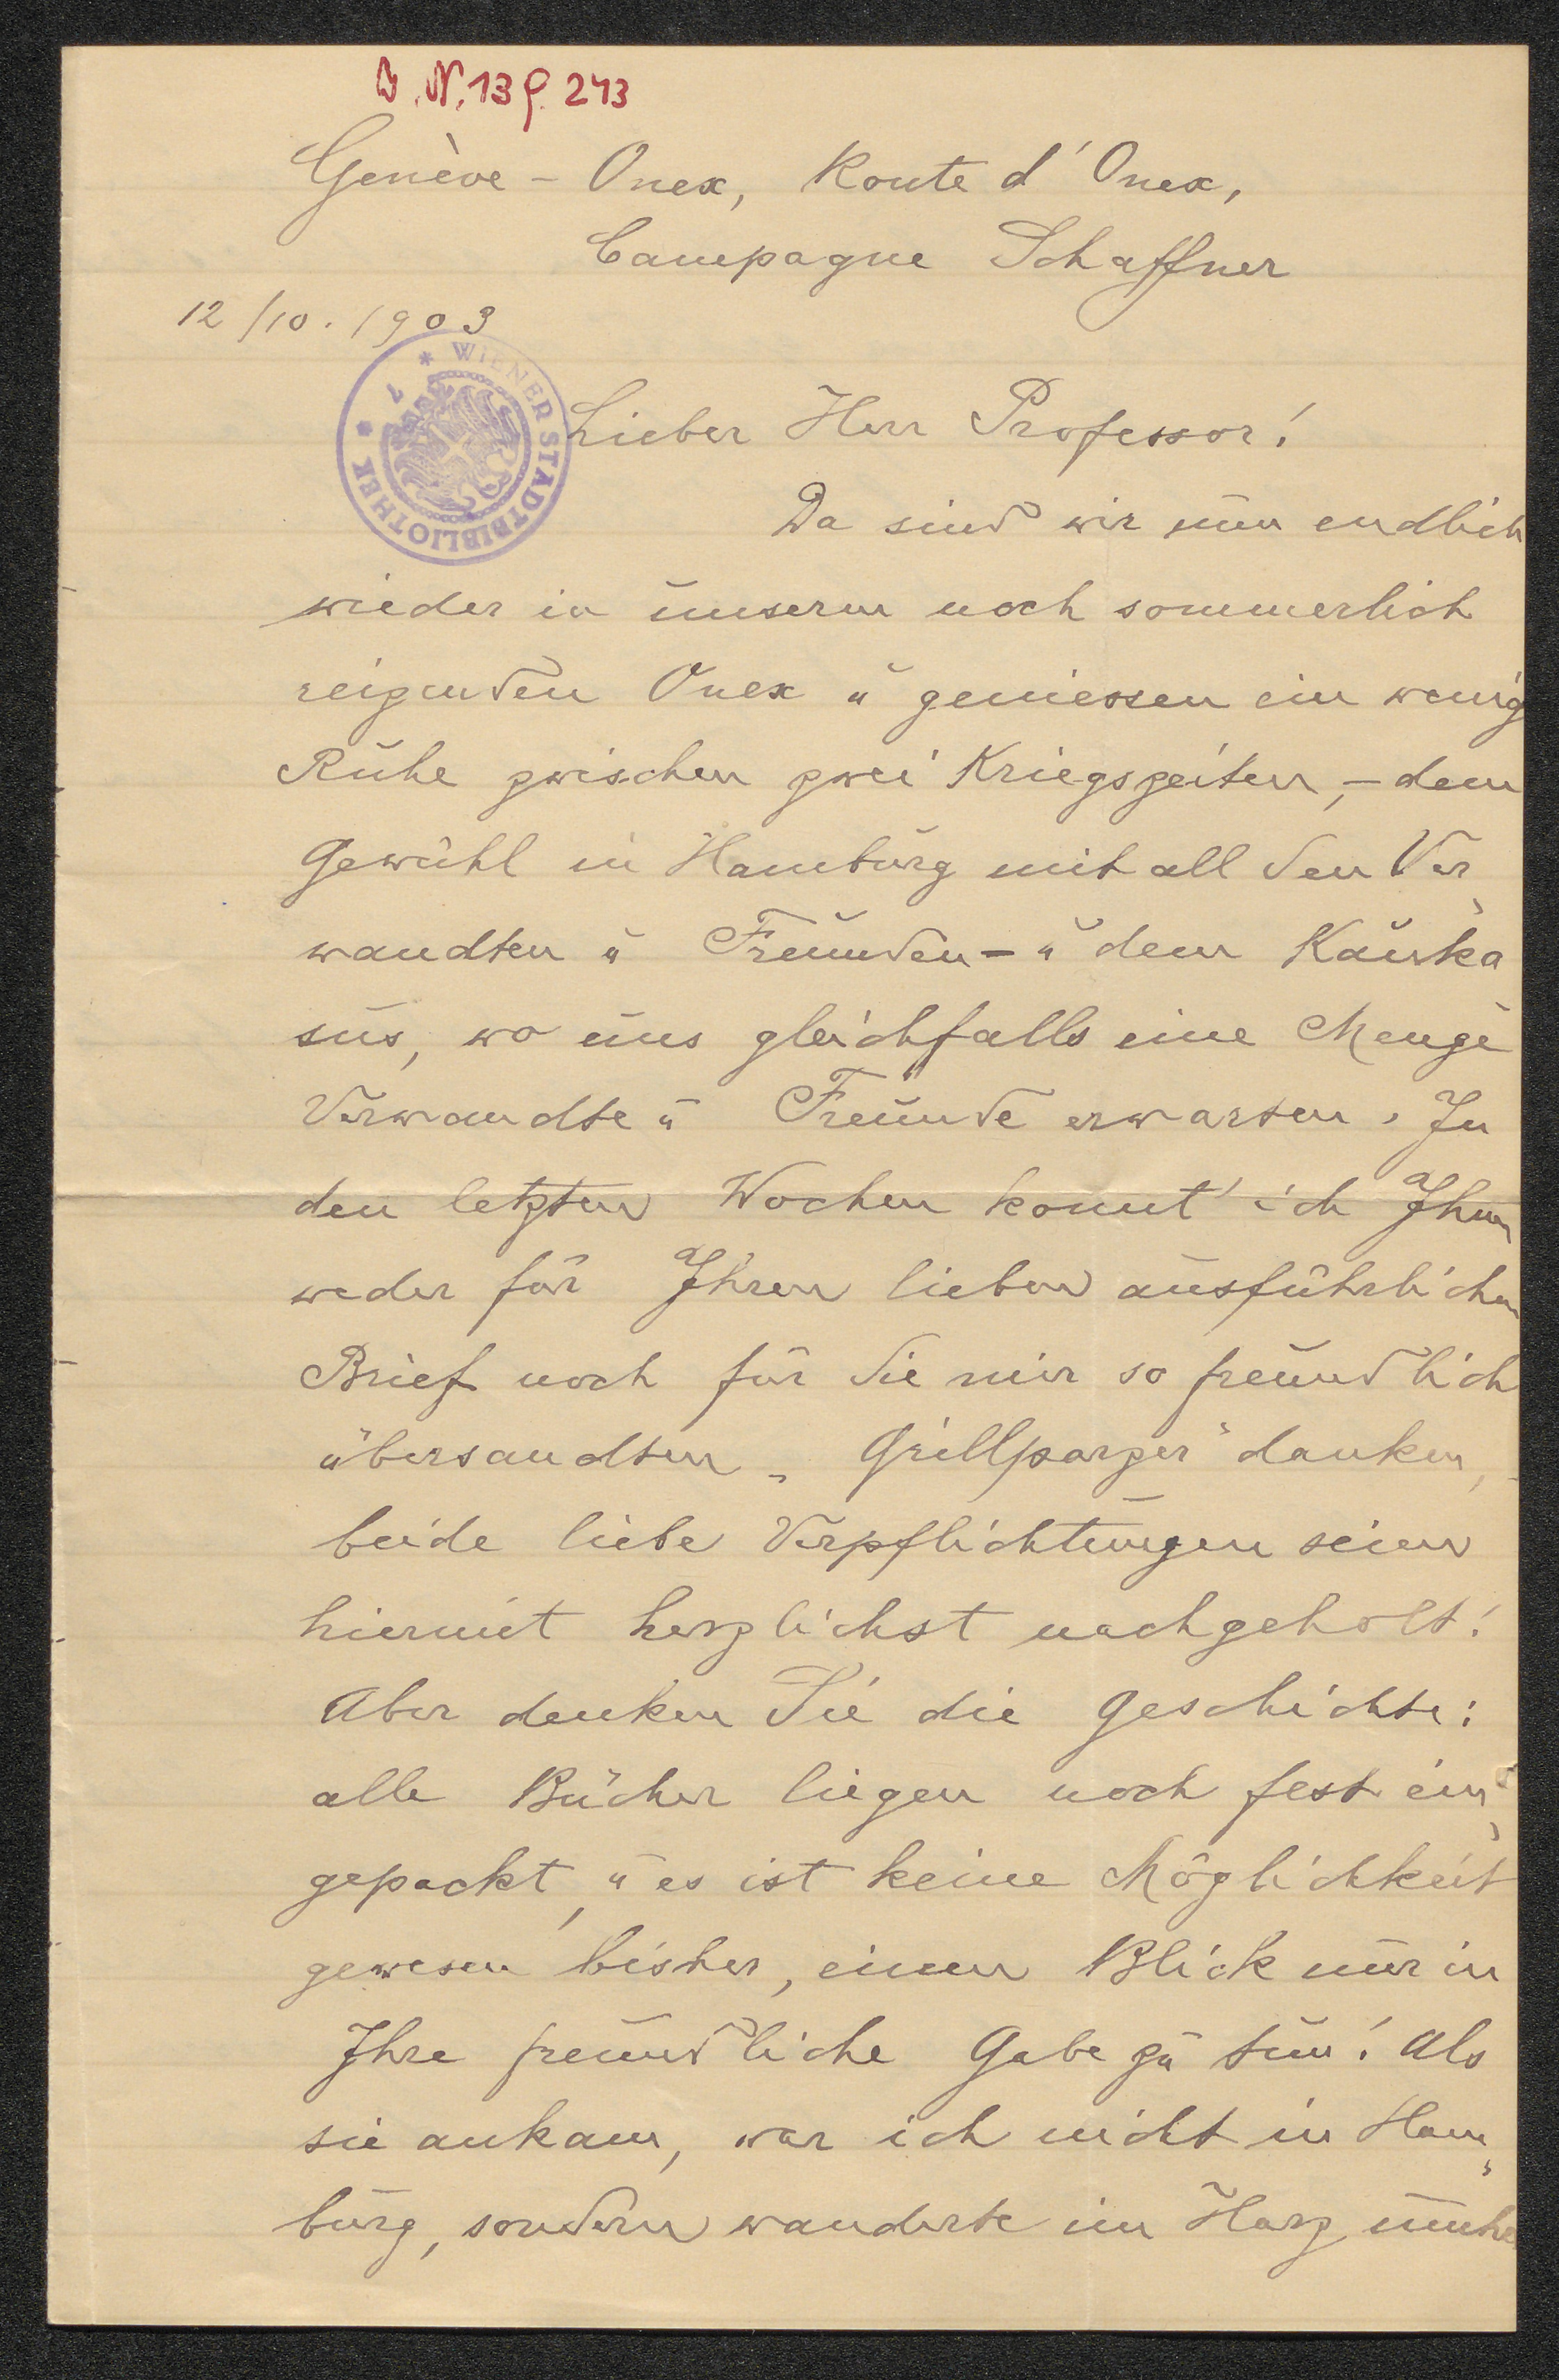 I.N.139.243
Genève - Onex, Route d'Onex,
Campagne Schaffner
12/10. 1903
* WIENER STADTBIBLIOTHEK *
Lieber Herr Professor!
Da sind wir nun endlich
wieder in unserm noch sommerlich
reizenden Onex u geniessen ein wenig
Ruhe zwischen zwei Kriegszeiten, – dem
Gewühl in Hamburg mit all den Ver-
wandten u Freunden – u dem Kauka
sus, wo uns gleichfalls eine Menge
Verwandte u Freunde erwarten. In
den letzten Wochen konnt' ich Ihnen
weder für Ihren lieben ausführlichen
Brief noch für die mir so freundlich
übersandten „Grillparzer" danken,
beide liebe Verpflichtungen seien
hiermit herzlichst nachgeholt!
Aber denken Sie die Geschichte:
alle Bücher liegen noch fest ein-
gepackt, u es ist keine Möglichkeit
gewesen bisher, einen Blick nur in
Ihre freundliche Gabe zu tun! Als
sie ankam, war ich nicht in Ham-
burg, sondern wanderte im Harz umher